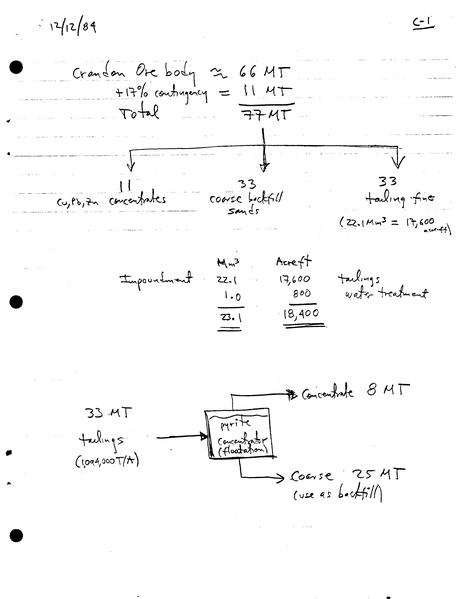 12/12/84
C-1
Crandon Ore body ≈ 66 MT
+17% contingency = 11 MT
Total 77 MT
11 33 33
Cu, Pb, Zn concentrates coarse backfill tailing fines
sands (22.1 Mm³ = 17,600
acreft)
Mm³ Acreft
Impoundment 22.1 17,600 tailings
1.0 800 water treatment
23.1 18,400
Concentrate 8 MT
33 MT
pyrite
tailings concentrator
(1,094,000 T/A) (floatation)
Coarse 25 MT
(use as backfill)